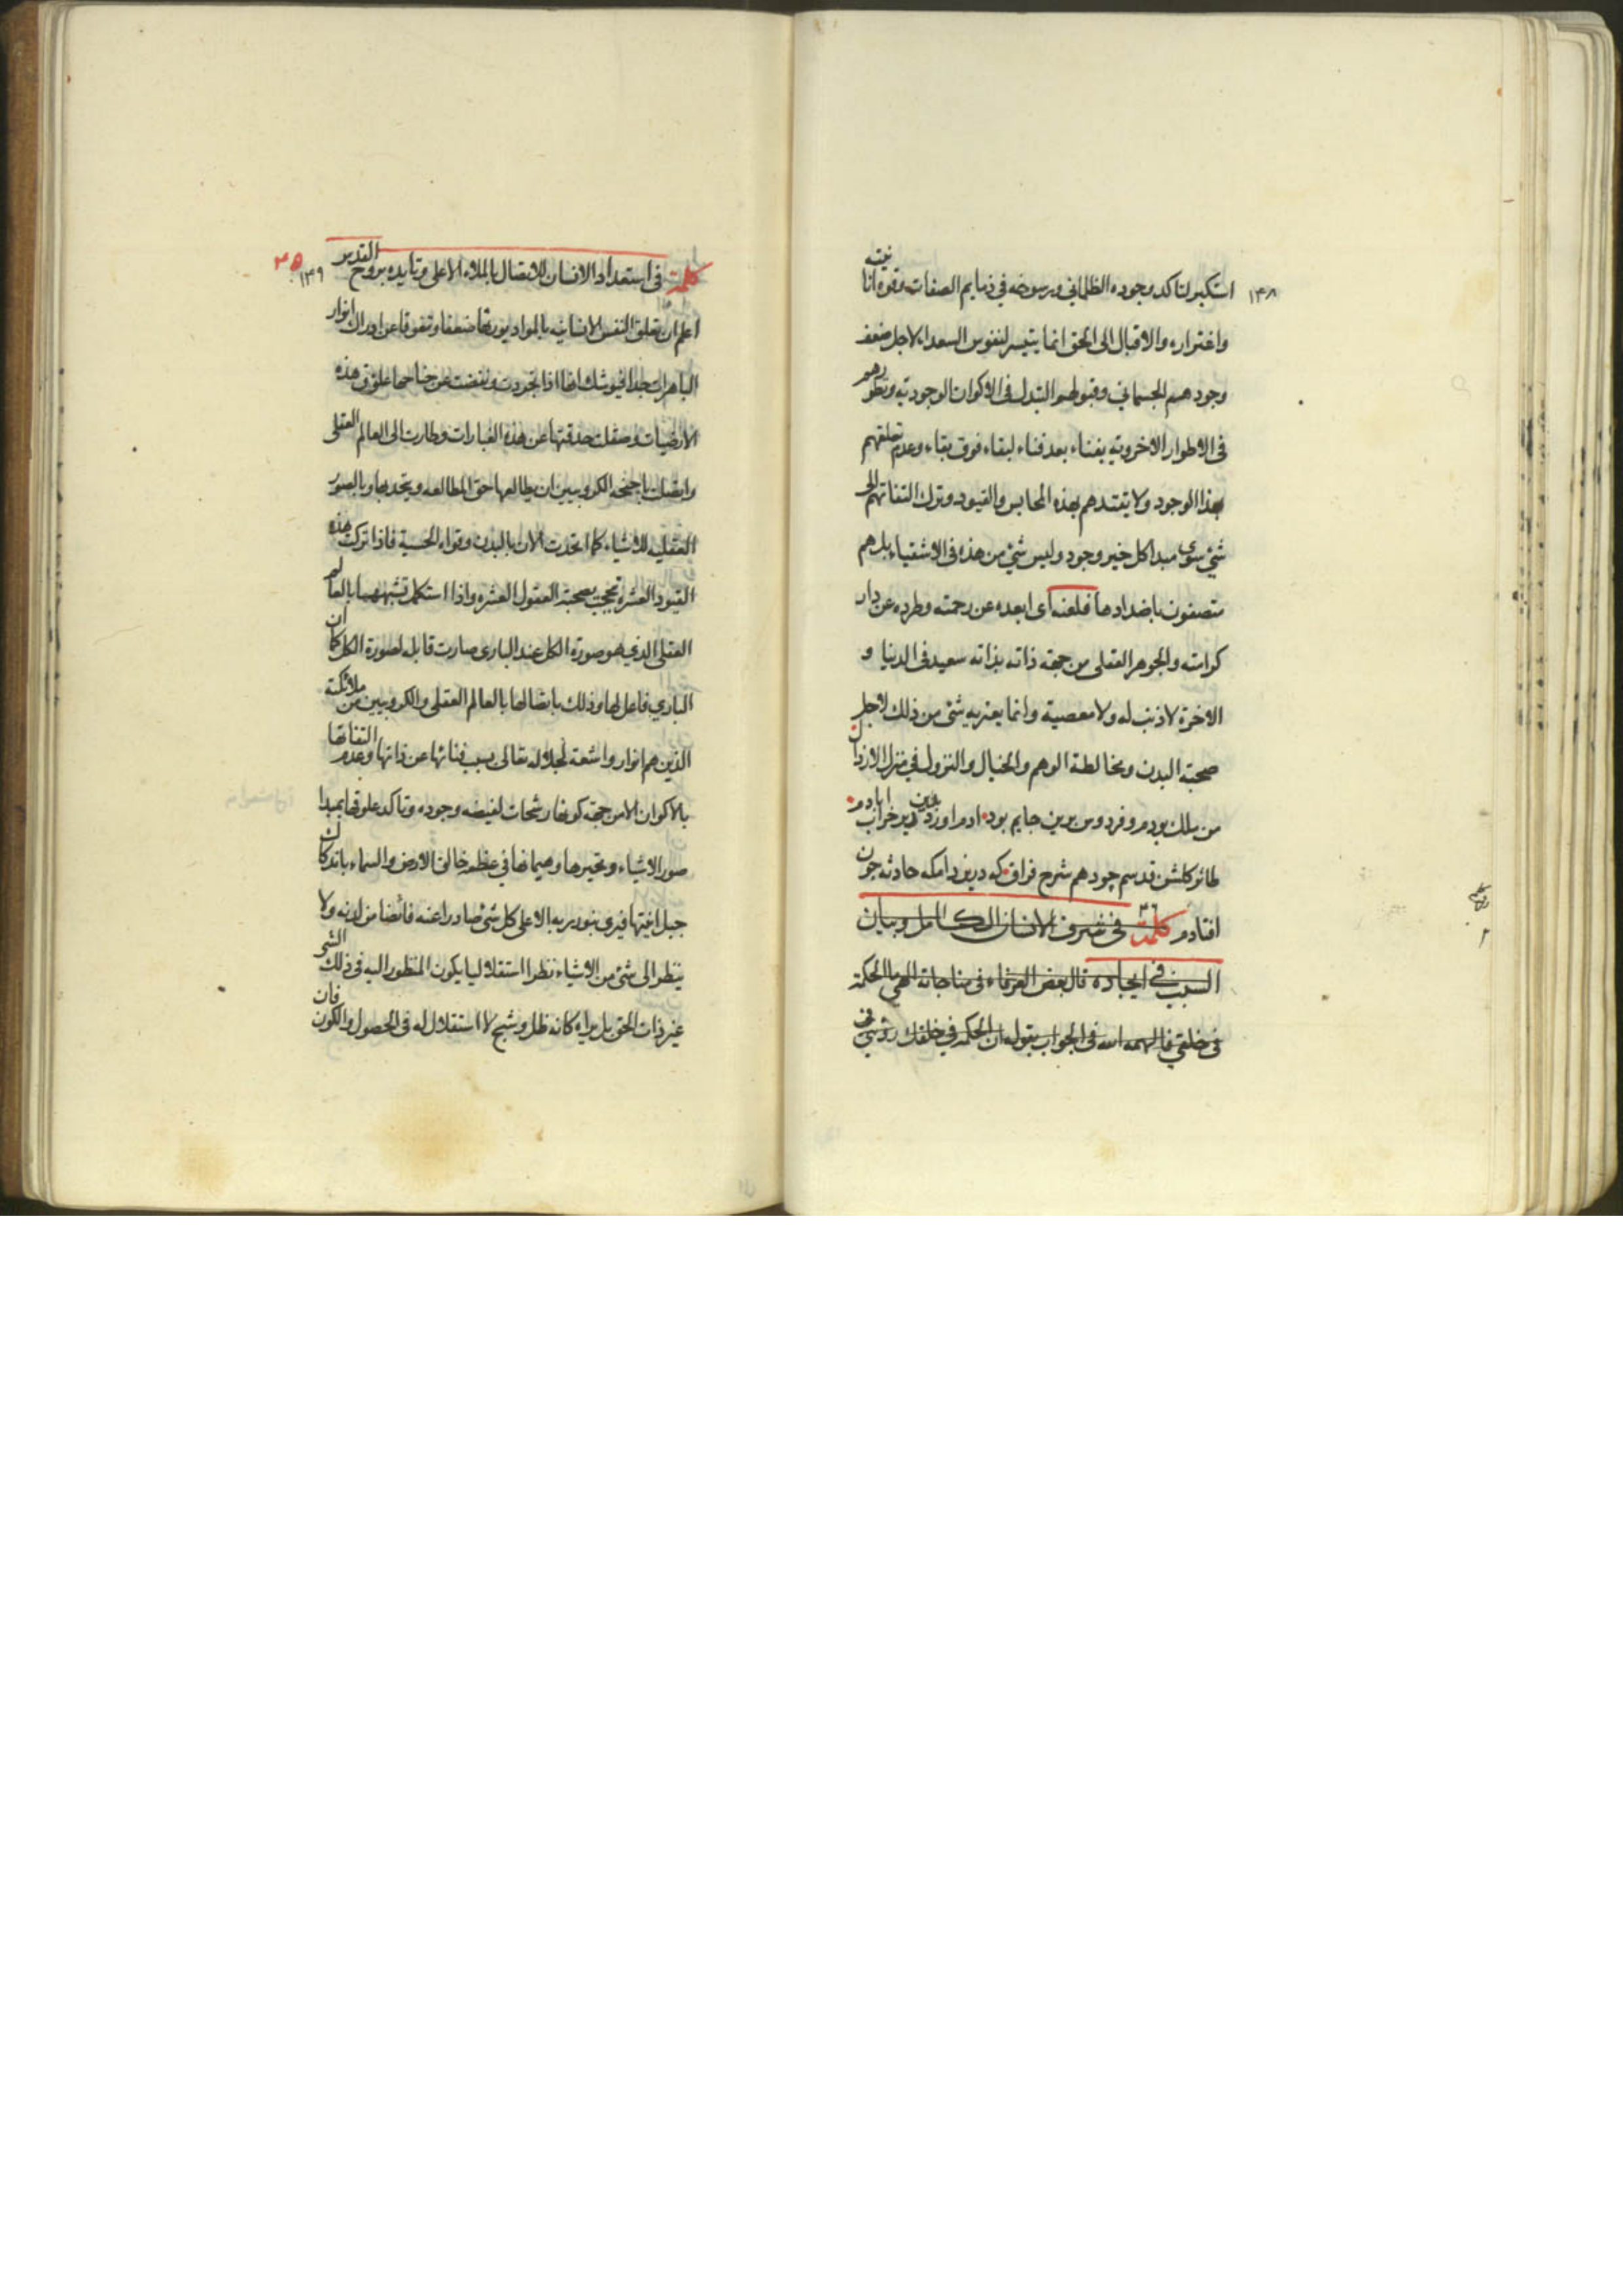 ۱۴۸
استكبر لتاكد وجوده الظلماني ورسوخه في ذمايم الصفات وقوة انانيته
واغتراره والاقبال الى الحق انما يتيسر لنفوس السعداء لاجل ضعف
وجودهم الجسماني وقبولهم التبدل في الاكوان الوجودية وتطورهم
في الاطوار الاخروية بفناء بعد فناء لبقاء فوق بقاء وعدم تعلقهم
بهذا الوجود ولا يقتدهم بهذه المحابس والقيود وترك التفاتهم الى
شئ سوى مبدا كل خير وجود وليس شئ من هذه في الاشقياء بل هم
متصفون باضدادها فلعنه اى ابعده عن رحمته وطرده عن دار
كرامته والجوهر العقلى من جهة ذاته بذاته سعيد في الدنيا و
الاخرة لا ذنب له ولا معصية وانما يعتريه شئ من ذلك لاجل
صحبة البدن ومخالطة الوهم والخيال والنزول في منزل الارذال
من ملك بودم وفردوس برين جايم بود ادم اورد درين دير خراب ابادم
طائر كلشن قدسم چه دهم شرح فراق كه درين دامكه حادثه چون
افتادم كلمة ۳۶ في شرف الانسان الكامل وبيان
السبب في ايجاده قال بعض العرفاء في مناجاته الهى ما الحكمة
في خلقي فالهمه الله في الجواب بقوله ان الحكمة في خلقك رؤيتي في
۳۵
۱۴۹
كلمة في استعداد الانسان للاتصال بالملاء الاعلى وتايده بروح القدس
اعلم ان تعلق النفس الانسانيه بالمواد يورثها ضعفا وتعوقا عن ادراك انوار
الباهرات جدا فيوشك انها اذا تجردت ونفضت عن جناحها علوق هذه
الارضيات وصقلت حدقتها عن هذه الغبارات وطارت الى العالم العقلى
واتصلت باجنحة الكروبيين ان يطالعها حق المطالعه ويتحد بها وبالصور
العقلية للاشياء كما اتحدت الان بالبدن وقواه الحسية فاذا تركت هذه
القيود العشرة بصحبة العقول العشرة واذا استكمل تشبهها بالعالم
العقلى الذي هو صورة الكل عند البارى صارت قابلة لصورة الكل كما ان
الباري فاعل لها وذلك باتصالها بالعالم العقلى والكروبيين من ملائكته
الذين هم انوار واشعة لجلاله تعالى بسبب فنائها عن ذاتها وعدم التفاتها
بالاكوان الا من جهة كونها رشحات لفيضه وجوده وتاكد علوقها بمبدا
صور الاشياء وتحيرها وهيمانها في عظمة خالق الارض والسماء باندكاك
جبل انيتها فيرى بنور ربه الاعلى كل شئ صادرا عنه فائضا من لدنه ولا
ينظر الى شئ من الاشياء نظرا استقلاليا يكون المنظور اليه في ذلك الشئ
غير ذات الحق بل يراه كانه ظل وشبح لا استقلال له في الحصول والكون فان